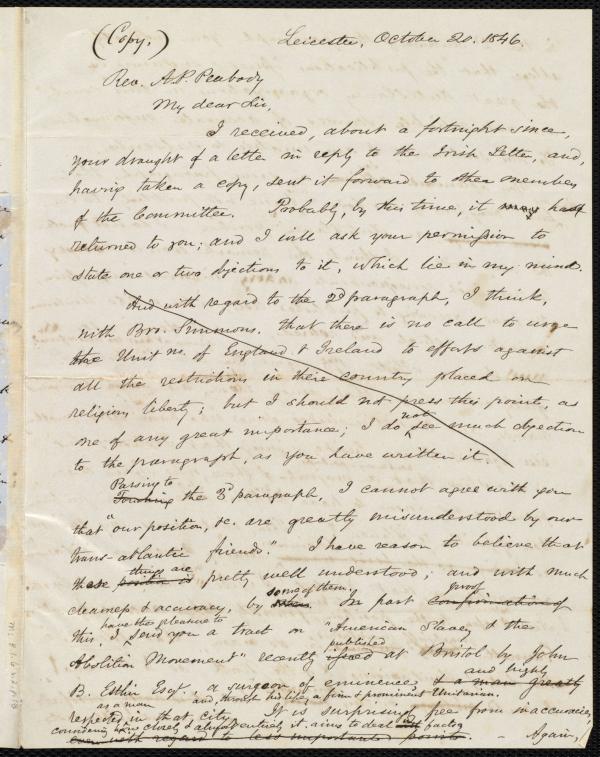 (Copy.)
Leicester, October 20. 1846.
Rev. A. P. Peabody
My dear Sir,
I received, about a fortnight since,
your draught of a letter in reply to the Irish Letter, and,
having taken a copy, sent it forward to other members
of the Committee. Probably, by this time, it may have
returned to you; and I will ask your permission to
state one or two objections to it, which lie in my mind.
And with regard to the 2d paragraph, I think,
with Bro. Simmons, that there is no call to urge
the Unit ns. of England & Ireland to efforts against
all the restrictions in their country placed on
religious liberty; but I should not press this point, as
one of any great importance; I do not see much objection
to the paragraph, as you have written it.
Passing to
Touching the 3d paragraph, I cannot agree with you
that "our position, &c. are greatly misunderstood by our
trans-atlantic friends." I have reason to believe that
things are
these position is pretty well understood; and with much
some of them. proof
clearness & accuracy, by In part confirmation of
have the pleasure to
this, I send you a tract on "American Slavery & the
published
Abolition Movement" recently issued at Bristol by John
and highly
B. Estlin Esqr., a surgeon of eminence & a man greatly
as a man and, through his life, a firm & prominent Unitarian.
respected in that city. It is surprisingly free from inaccuracies,
considering how closely & attentively it aims to deal with facts
even with regard to less important points. – Again,